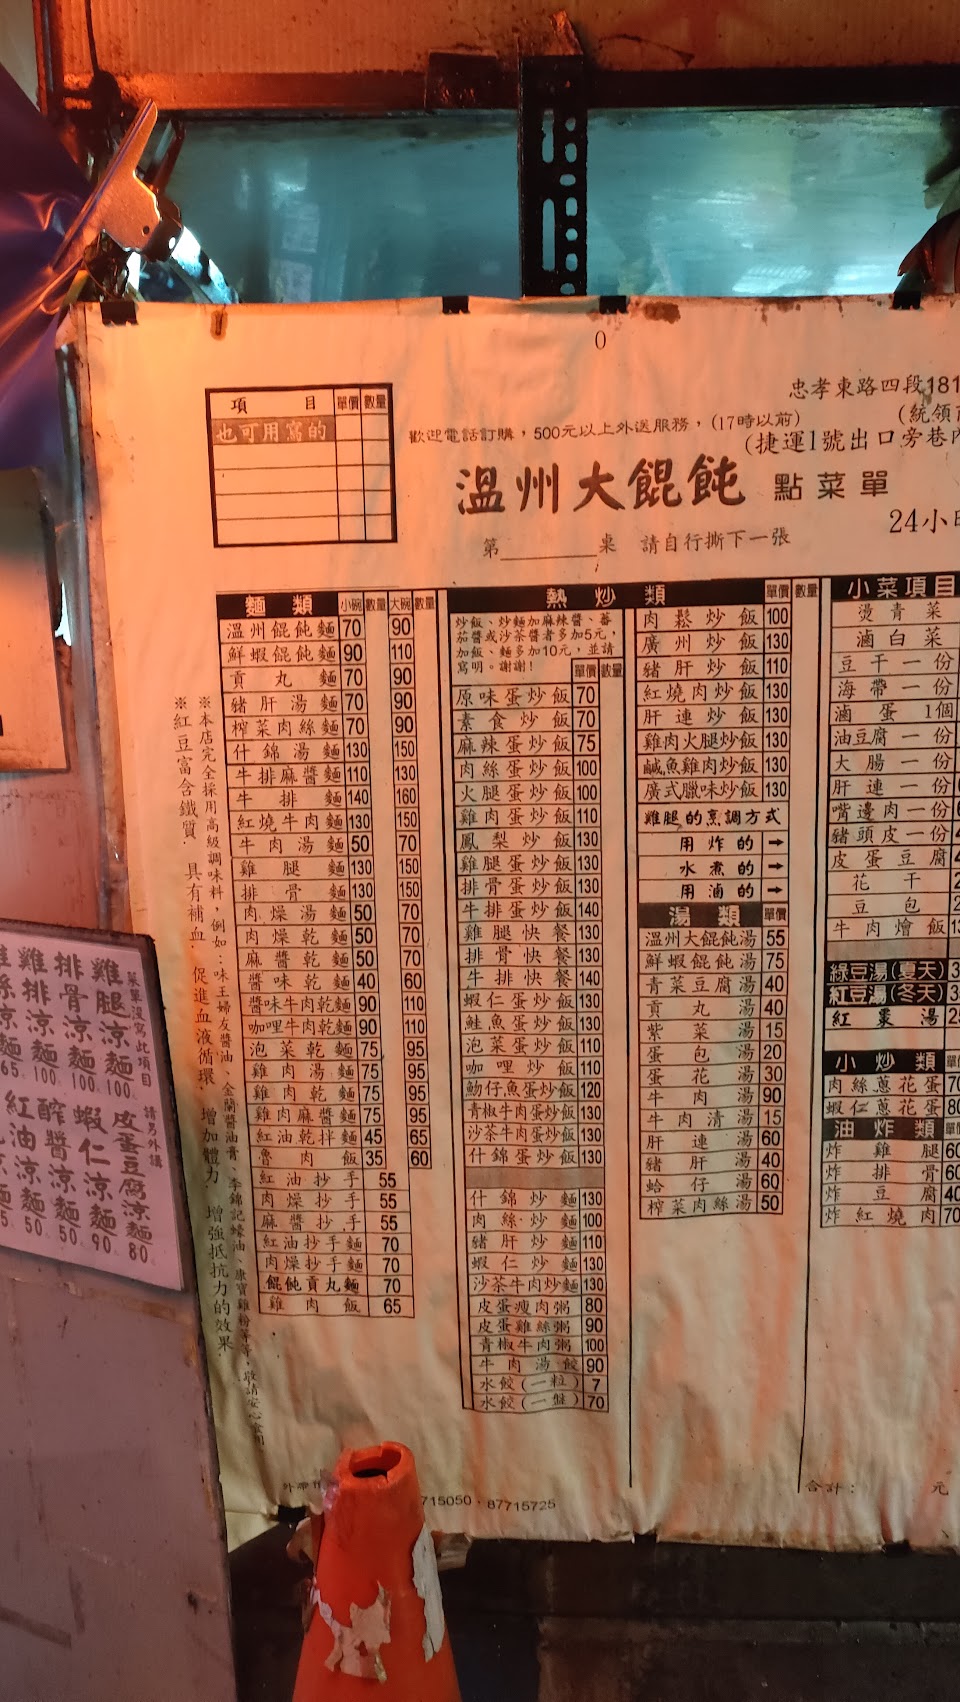 0
忠孝東路四段181
(統領百
(捷運1號出口旁巷內
歡迎電話訂購，500元以上外送服務，(17時以前)
溫州大餛飩 點菜單
24小時
第 桌 請自行撕下一張
項目 單價 數量
也可用寫的
麵類 小碗 數量 大碗 數量
溫州餛飩麵 70 90
鮮蝦餛飩麵 90 110
貢丸麵 70 90
豬肝湯麵 70 90
榨菜肉絲麵 70 90
什錦湯麵 130 150
牛排麻醬麵 110 130
牛排麵 140 160
紅燒牛肉麵 130 150
牛肉湯麵 50 70
雞腿麵 130 150
排骨麵 130 150
肉燥湯麵 50 70
肉燥乾麵 50 70
麻醬乾麵 50 70
醬味乾麵 40 60
醬味牛肉乾麵 90 110
咖哩牛肉乾麵 90 110
泡菜乾麵 75 95
雞肉湯麵 75 95
雞肉乾麵 75 95
雞肉麻醬麵 75 95
紅油乾拌麵 45 65
魯肉飯 35 60
紅油抄手 55
肉燥抄手 55
麻醬抄手 55
紅油抄手麵 70
肉燥抄手麵 70
餛飩貢丸麵 70
雞肉飯 65
熱炒類 單價 數量
炒飯、炒麵加麻辣醬、蕃
茄醬或沙茶醬者多加5元，
加飯、麵多加10元，並請
寫明。謝謝！
單價 數量
原味蛋炒飯 70
素食炒飯 70
麻辣蛋炒飯 75
肉絲蛋炒飯 100
火腿蛋炒飯 100
雞肉蛋炒飯 110
鳳梨炒飯 130
雞腿蛋炒飯 130
排骨蛋炒飯 130
牛排蛋炒飯 140
雞腿快餐 130
排骨快餐 130
牛排快餐 140
蝦仁蛋炒飯 130
鮭魚蛋炒飯 130
泡菜蛋炒飯 110
咖哩炒飯 110
魩仔魚蛋炒飯 120
青椒牛肉蛋炒飯 130
沙茶牛肉蛋炒飯 130
什錦蛋炒飯 130
什錦炒麵 130
肉絲炒麵 100
豬肝炒麵 110
蝦仁炒麵 130
沙茶牛肉炒麵 130
皮蛋瘦肉粥 80
皮蛋雞絲粥 90
青椒牛肉粥 100
牛肉湯餃 90
水餃(一粒) 7
水餃(一盤) 70
肉鬆炒飯 100
廣州炒飯 130
豬肝炒飯 110
紅燒肉炒飯 130
肝連炒飯 130
雞肉火腿炒飯 130
鹹魚雞肉炒飯 130
廣式臘味炒飯 130
雞腿的烹調方式
用炸的→
水煮的→
用滷的→
湯類 單價
溫州大餛飩湯 55
鮮蝦餛飩湯 75
青菜豆腐湯 40
貢丸湯 40
紫菜湯 15
蛋包湯 20
蛋花湯 30
牛肉湯 90
牛肉清湯 15
肝連湯 60
豬肝湯 40
蛤仔湯 60
榨菜肉絲湯 50
小菜項目
燙青菜
滷白菜
豆干一份
海帶一份
滷蛋1個
油豆腐一份
大腸一份
肝連一份
嘴邊肉一份
豬頭皮一份
皮蛋豆腐
花干
豆包
牛肉燴飯
綠豆湯(夏天)
紅豆湯(冬天)
紅棗湯
小炒類 單
肉絲蔥花蛋 70
蝦仁蔥花蛋 80
油炸類 單
炸雞腿 60
炸排骨 60
炸豆腐 40
炸紅燒肉 70
合計： 元
※本店完全採用高級調味料，例如：味王婦友醬油、金蘭醬油膏、李錦記蠔油、康寶雞粉等等，敬請安心食用
※紅豆富含鐵質．具有補血．促進血液循環．增加體力．增強抵抗力的效果
715050．87715725
菜單沒寫此項目 請另外講
雞腿涼麵 100
排骨涼麵 100
雞排涼麵 100
絲涼麵 65
皮蛋豆腐涼麵 80
蝦仁涼麵 90
醡醬涼麵 50
紅油涼麵 50